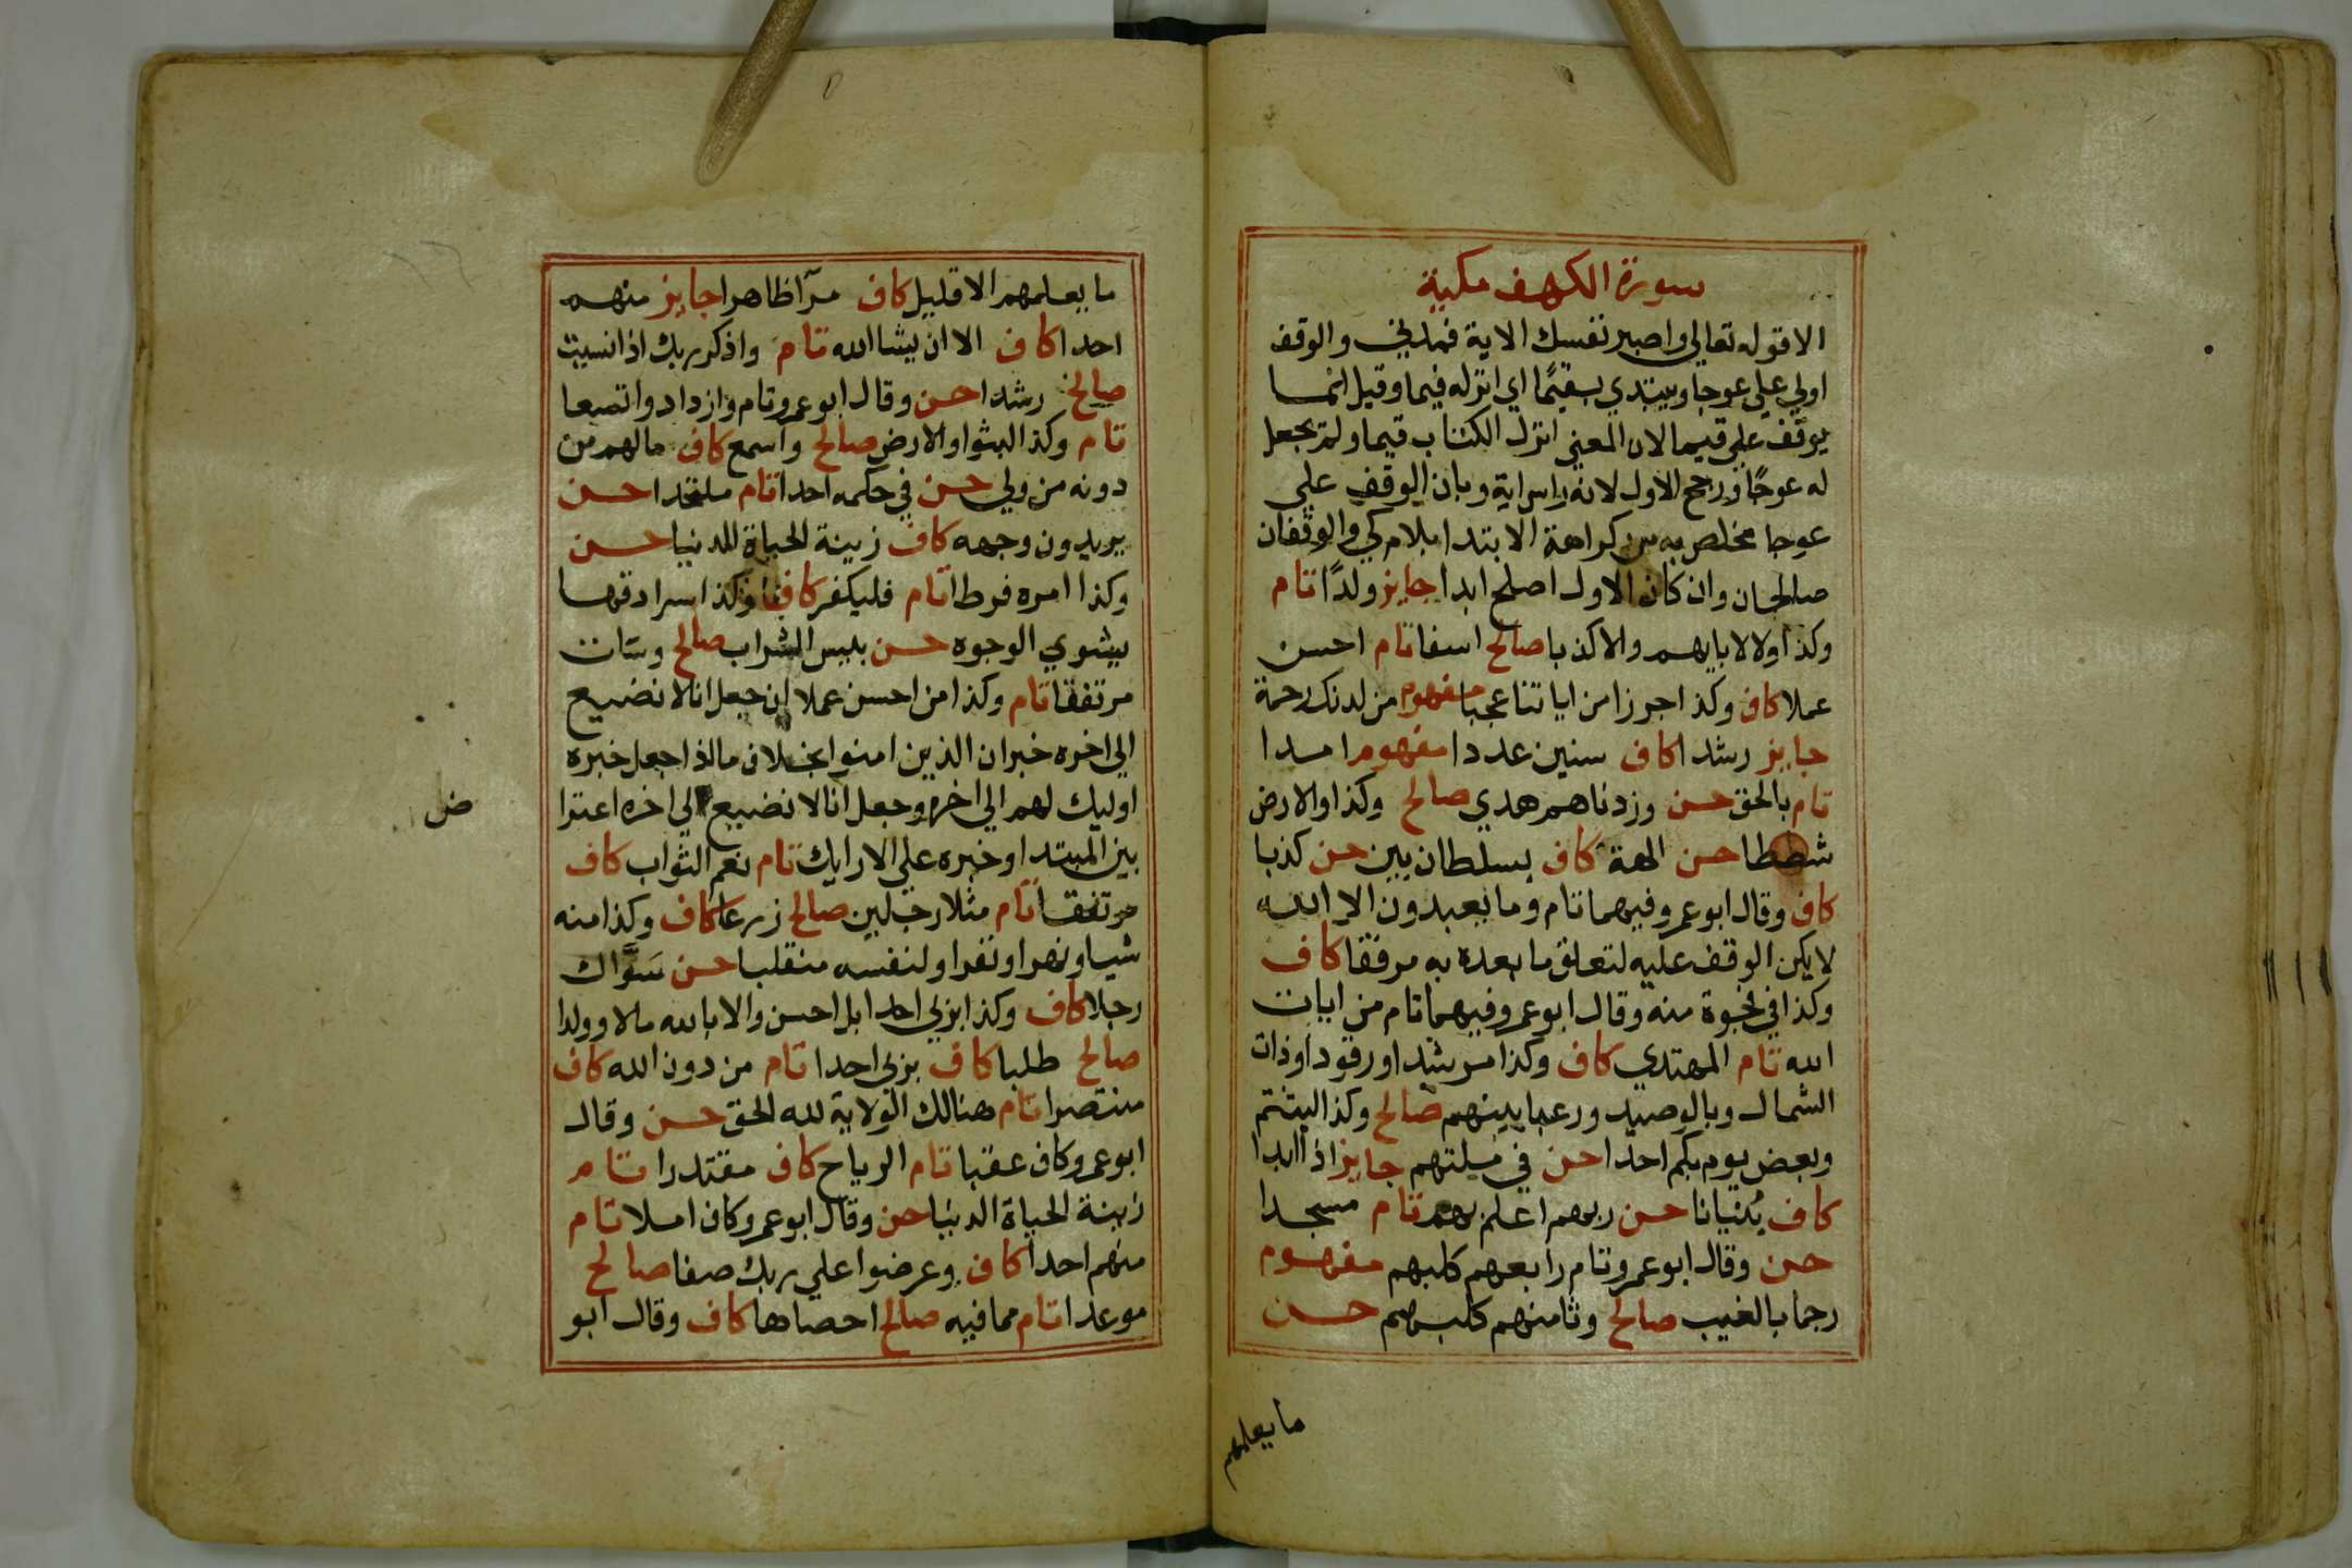 سورة الكهف مكية
الا قوله تعالي واصبر نفسك الاية فمدني والوقف
اولي علي عوجا ويبتدي بقيمًا اي انزله قيما وقيل انما
يوقف علي قيما لان المعني انزل الكتاب قيما ولم يجعل
له عوجًا ورجح الاول لانه راس اية وبان الوقف علي
عوجا مخلص به من كراهة الابتدا بلام كي والوقفان
صالحان وان كان الاول اصلح ابدا جايز ولدًا تام
وكذا ولا لابايهم والا كذبا صالح اسفا تام احسن
عملا كاف وكذا جرزا من اياتنا عجبا مفهوم من لدنك رحمة
جايز رشدا كاف سنين عددا مفهوم امدا
تام بالحق حسن وزدناهم هدي صالح وكذا والارض
شططا حسن الهة كاف بسلطان بين حسن كذبا
كاف وقال ابوعمرو فيهما تام وما يعبدون الا الله
لا يكن الوقف عليه لتعلق ما بعده به مرفقا كاف
وكذا في فجوة منه وقال ابوعمرو فيهما تام من ايات
الله تام المهتدي كاف وكذا مرشدا ورقود او ذات
الشمال وبالوصيد ورعبا بينهم صالح وكذا لبثتم
وبعض يوم بكم احدا حسن في ملتهم جايز اذا ابدا
كاف بنيانا حسن ربهم اعلم بهم تام مسجدا
حسن وقال ابوعمرو تام رابعهم كلبهم مفهوم
رجما بالغيب صالح وثامنهم كلبهم حسن
ما يعلمهم
ما يعلمهم الا قليل كاف مرآ ظاهرا جايز منهم
احدا كاف الا ان يشا الله تام واذكر ربك اذا نسيت
صالح رشدا حسن وقال ابوعمرو تام وازدادوا تسعا
تام وكذا لبثوا والارض صالح واسمع كاف ما لهم من
دونه من ولي حسن في حكمه احدا تام ملتحدا حسن
يريدون وجهه كاف زينة الحياة الدنيا حسن
وكذا امره فرطا تام فليكفر كاف وكذا سرادقها
يشوي الوجوه حسن بليس الشراب صالح وسات
مرتفقا تام وكذا من احسن عملا ان جعل انا لا نضيع
الي اخره خبر ان الذين امنوا بخلاف ما اذا جعل خبره
اوليك لهم الي اخره وجعل انا لا نضيع الي اخره اعترا
ض
بين المبتدا وخبره علي الارايك تام نعم الثواب كاف
مرتفقا تام مثلا رجلين صالح زرعا كاف وكذا منه
شيا ونهرا ونفرا ولنفسه منقلبا حسن سَوَّاك
رجلا كاف وكذا بربي احدا بل احسن والا بالله مالا وولدا
صالح طلبا كاف بربي احدا تام من دون الله كاف
منتصرا تام هنالك الولاية لله الحق حسن وقال
ابوعمرو كاف عقبا تام الرياح كاف مقتدرا تام
زينة الحياة الدنيا حسن وقال ابوعمرو كاف املا تام
منهم احدا كاف وعرضوا علي ربك صفا صالح
موعدا تام مما فيه صالح احصاها كاف وقال ابو